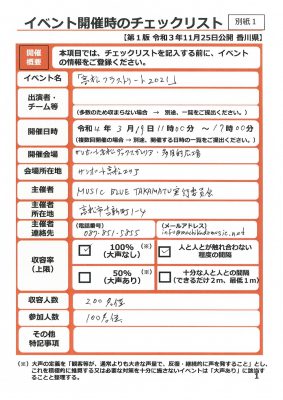 イベント開催時のチェックリスト
別紙1
【第1版 令和3年11月25日公開 香川県】
開催概要
本項目では、チェックリストを記入する前に、イベントの情報をご登録ください。
イベント名
出演者・チーム等
(多数のため収まらない場合 → 別途、一覧をご提出ください。)
開催日時
令和4年3月19日11時00分 ～17時00分
(複数回開催の場合 → 別途、開催する日時の一覧をご提出ください。)
開催会場
会場所在地
主催者
MUSIC BLUE TAKAMATSU実行委員会
主催者所在地
主催者連絡先
(電話番号)
087-811-5855
(メールアドレス)
収容率(上限)
100% (※)
(大声なし)
人と人とが触れ合わない程度の間隔
50% (※)
(大声あり)
十分な人と人との間隔
(できるだけ2m、最低1m)
収容人数
200名位
参加人数
100名位
その他特記事項
(※) 大声の定義を「観客等が、通常よりも大きな声量で、反復・継続的に声を発すること」とし、
これを積極的に推奨する又は必要な対策を十分に施さないイベントは「大声あり」に該当
することと整理する。
1